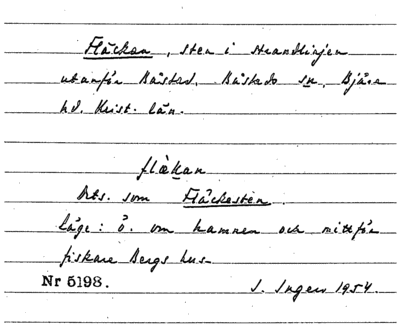 Fläckan, sten i strandlinjen
utanför Båstad. Båstads sn, Bjäre
hd. Krist. län.
flä̀kan
Dets. som Fläckesten.
Läge: ö. om hamnen och mittför
fiskare Bergs hus.
Nr 5198. S. Ingers 1954.